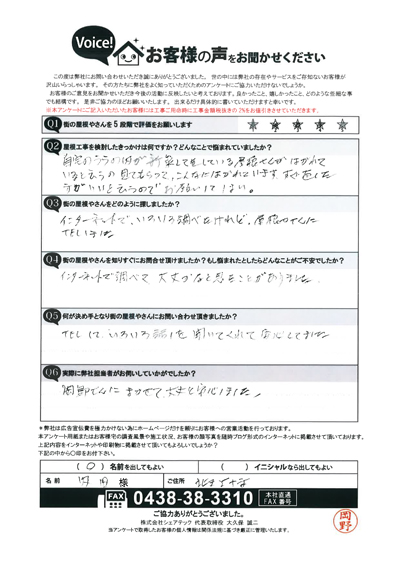 Voice!
お客様の声をお聞かせください
この度は弊社にお問い合わせいただき誠にありがとうございました。世の中には弊社の存在やサービスをご存知ないお客様が
沢山いらっしゃいます。その方たちに弊社をよく知っていただくためのアンケートにご協力いただけないでしょうか。
お客様のご意見をお聞かせいただき今後の活動に反映したいと考えております。良かったこと、嬉しかったこと、どのような些細な事
でも結構です。是非ご協力のほどお願いいたします。出来るだけ具体的に書いていただけますと幸いです。
※本アンケートにご記入いただいたお客様には工事ご用命時に工事金額税抜きの2%をお値引きさせていただきます。
Q1 街の屋根やさんを5段階で評価をお願いします ★ ★ ★ ★ ★
Q2 屋根工事を検討したきっかけは何ですか?どんなことで悩まれていましたか?
Q3 街の屋根やさんをどのように探しましたか?
インターネットで、いろいろ調べたけれど、屋根やさんに
TELしました
Q4 街の屋根やさんを知りすぐにお問合せ頂けますか?もし悩まれたとしたらどんなことがご不安でしたか?
インターネットで調べて 大丈夫かなと思うことがありました
Q5 何が決め手となり街の屋根やさんにお問い合わせ頂きましたか?
TELして、いろいろ話を聞いてくれて安心しました
Q6 実際に弊社担当者がお伺いしていかがでしたか?
岡部さんにまかせて、大丈夫と安心しました。
*弊社は広告宣伝費を極力かけない為にホームページだけを頼りにお客様への営業活動を行っております。
本アンケート用紙またはお客様宅の調査風景や施工状況、お客様の顔写真を随時ブログ形式のインターネットに掲載させて頂いております。
上記内容をインターネットや印刷物に掲載させて頂いてもよろしいでしょうか?
下記の中から〇印をお付下さい。
( 〇 ) 名前を出してもよい ( ) イニシャルなら出してもよい
名前 様 ご住所
FAX 0438-38-3310 本社直通 FAX番号
ご協力ありがとうございました。
株式会社シェアテック 代表取締役 大久保 誠二
当アンケートで取得したお客様の個人情報は関係法規に基づき厳正に管理いたします。
岡野